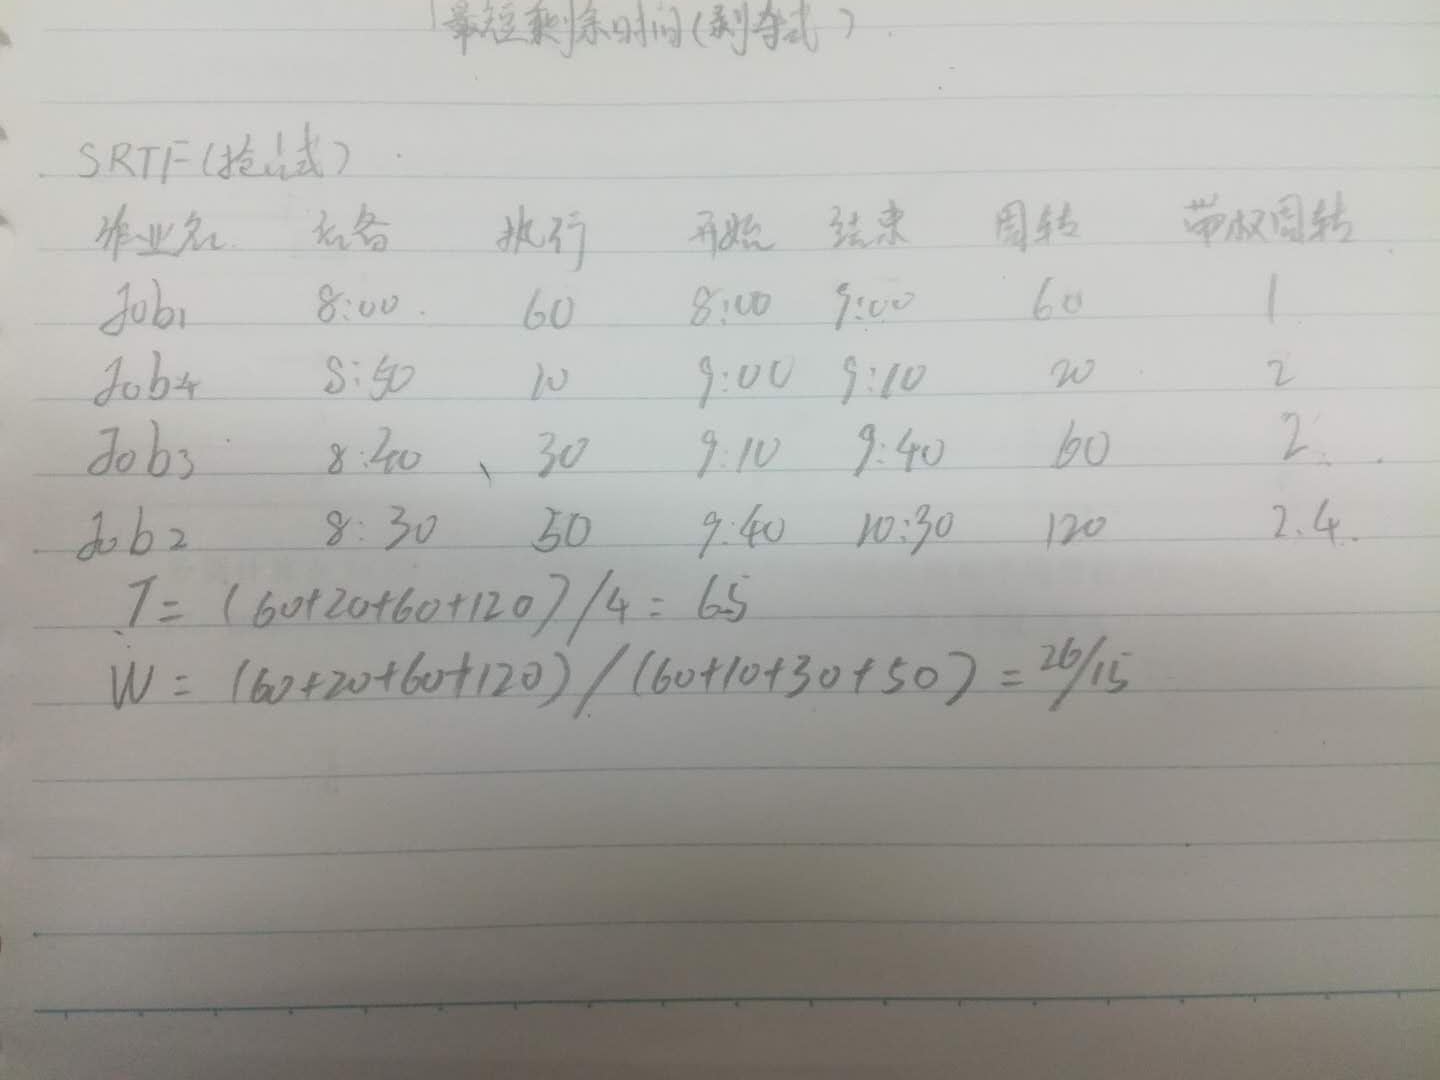 最短剩余时间(剥夺式)
SRTF(抢占式)
作业名 准备 执行 开始 结束 周转 带权周转
Job1 8:00 60 8:00 9:00 60 1
Job4 8:50 10 9:00 9:10 20 2
Job3 8:40 30 9:10 9:40 60 2
Job2 8:30 50 9:40 10:30 120 2.4
T = (60+20+60+120)/4 = 65
W = (60+20+60+120)/(60+10+30+50) = 26/15